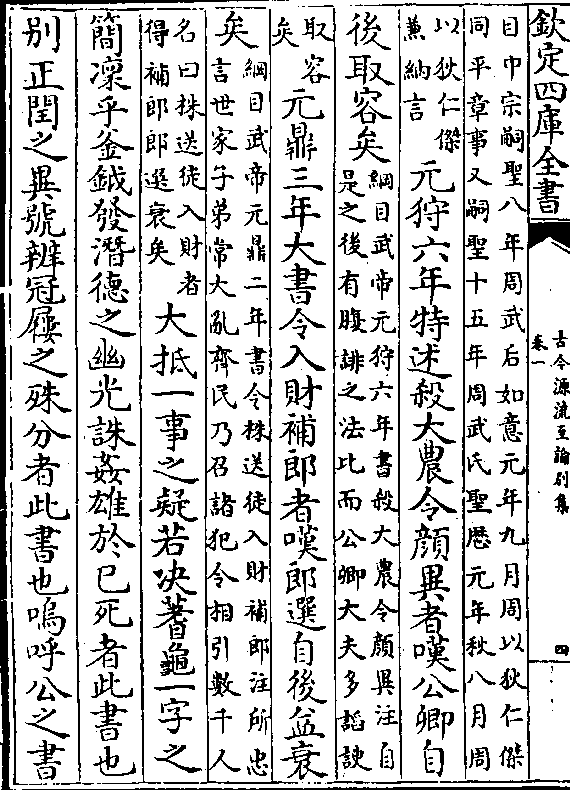 欽定四庫全書
古今源流至論别集
卷一
四
目中宗嗣聖八年周武后如意元年九月周以狄仁傑
同平章事又嗣聖十五年周武氏聖厯元年秋八月周
以狄仁傑
兼納言
元狩六年特述殺大農令顔異者嘆公卿自
後取容矣
綱目武帝元狩六年書殺大農令顔異注自
是之後有腹誹之法比而公卿大夫多謟諛
取容
矣
元鼎三年大書令入財補郎者嘆郎選自後益衰
矣
綱目武帝元鼎二年書令株送徒入財補郎注所忠
言世家子弟常大亂齊民乃召諸犯令相引數千人
名曰株送徒入財者
得補郎郎選衰矣
大抵一事之疑若决蓍龜一字之
簡凜乎釡鉞發潛德之幽光誅姦雄於已死者此書也
别正閏之異號辨冠屨之殊分者此書也嗚呼公之書